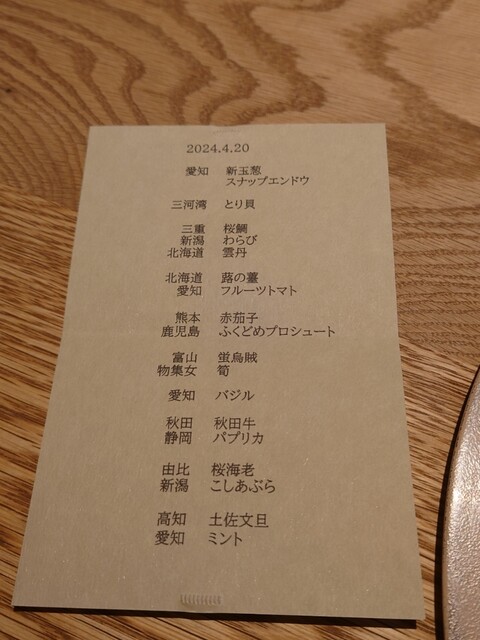 2024.4.20
愛知 新玉葱
スナップエンドウ
三河湾 とり貝
三重 桜鯛
新潟 わらび
北海道 雲丹
北海道 蕗の薹
愛知 フルーツトマト
熊本 赤茄子
鹿児島 ふくどめプロシュート
富山 蛍烏賊
物集女 筍
愛知 バジル
秋田 秋田牛
静岡 パプリカ
由比 桜海老
新潟 こしあぶら
高知 土佐文旦
愛知 ミント